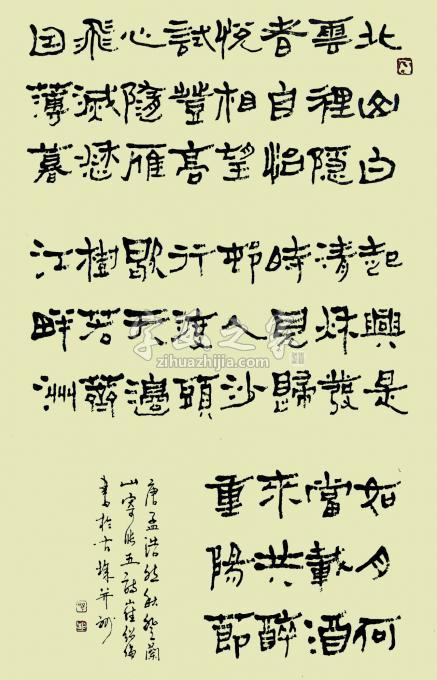 北山白
雲裡隱
者自怡
悅相望
試登高
心隨雁
飛滅愁
因薄暮
起興是
清秋發
時見歸
邨人沙
行渡頭
歇天邊
樹若薺
江畔洲
如月何
當載酒
來共醉
重陽節
唐孟浩然秋登蘭
山寄張五詩崔
書於古
字画之家
zihuazhijia.com